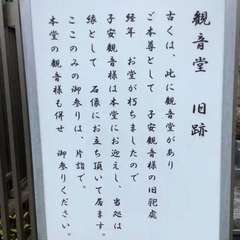 観音堂 旧跡
古くは、此に観音堂があり
ご本尊として 子安観音様の旧祀處
経年 お堂が朽ちましたので
子安観音様は本堂にお迎えし、当処は
縁として 石像にお立ち頂いて居ます。
ここのみの御参りは、片詣で。
本堂の観音様も併せ 御参りください。